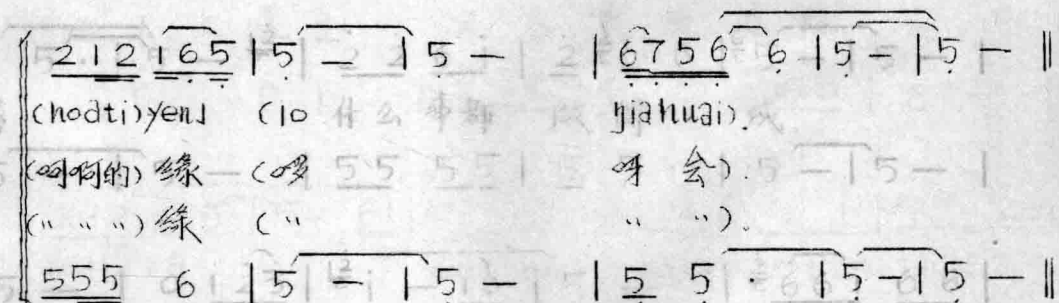 2 1 2 1 6 5 | 5 – | 5 – | 6 7 5 6 6 | 5 – | 5 – ‖
(hoati)yen (lo jiahuai).
(呵啊的)缘 (啰 呀 会).
(〃 〃 〃)缘 (〃 〃 〃).
5 5 5 6 | 5 – | 5 – | 5 5 · | 5 – | 5 – ‖